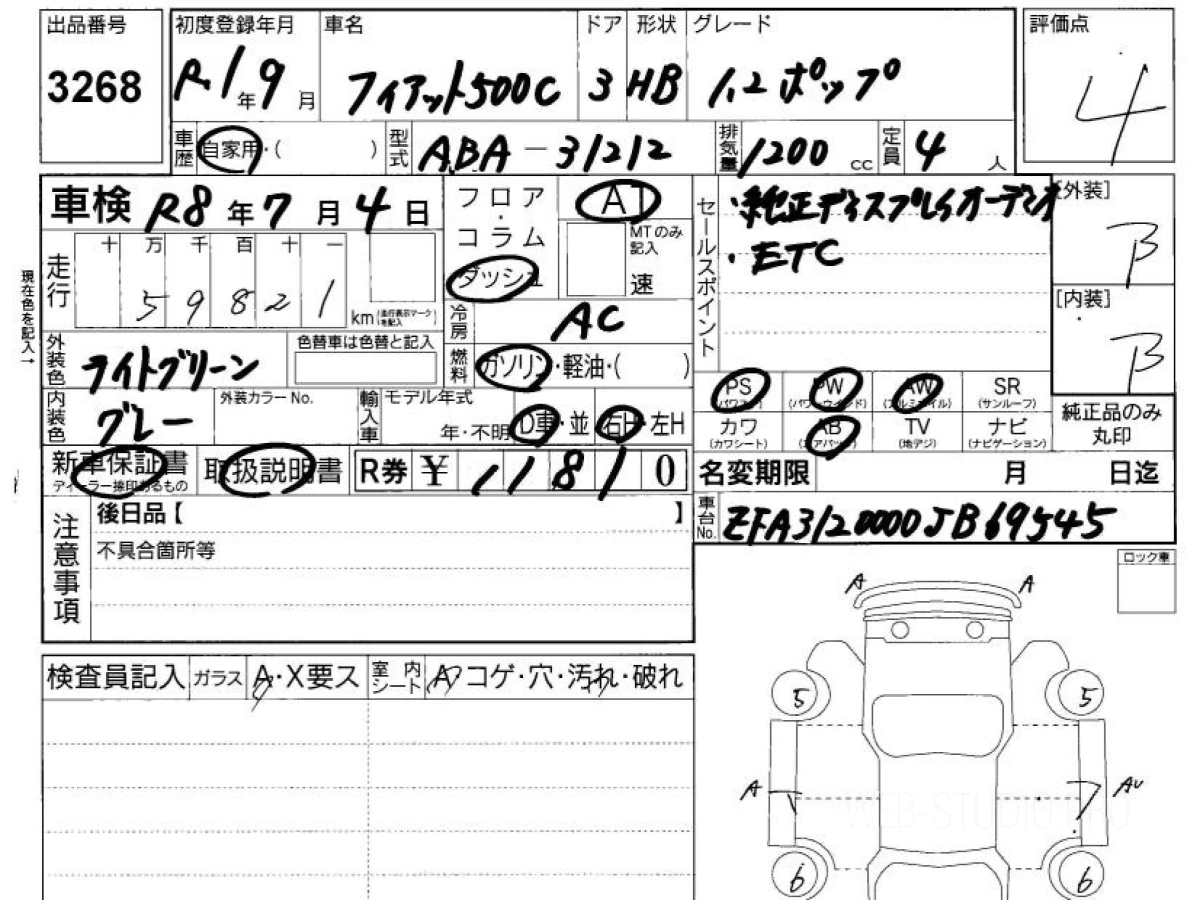 出品番号
3268
初度登録年月
R1年9月
車名
フィアット500C
ドア
3
形状
HB
グレード
1.2 ポップ
評価点
4
車歴 自家用・( )
型式 ABA-31212
排気量 1200 cc
定員 4人
車検 R8年7月4日
フロア・コラム
ダッシュ
AT
MTのみ記入
速
セールスポイント
・純正ディスプレイオーディオ
・ETC
[外装]
B
[内装]
B
現在色を記入→
走行
十 万 千 百 十 一
5 9 8 2 1 km (走行表示マークを記入)
冷房 AC
外装色 ライトグリーン
色替車は色替と記入
燃料 ガソリン・軽油・( )
内装色 グレー
外装カラーNo.
輸入車
モデル年式
年・不明
D車・並
右H・左H
PS (パワステ)
PW (パワーウインド)
AW (アルミホイル)
SR (サンルーフ)
カワ (カワシート)
AB (エアバッグ)
TV (地デジ)
ナビ (ナビゲーション)
純正品のみ丸印
新車保証書
ディーラー捺印あるもの
取扱説明書
R券 ¥ 11810
名変期限 月 日迄
注意事項
後日品【 】
不具合箇所等
車台No. ZFA3120000JB69545
ロック車
検査員記入
ガラス A・X要ス
室内シート A・コゲ・穴・汚れ・破れ
A A
5 5
A AU
WEB-STUDIO PRO
6 6